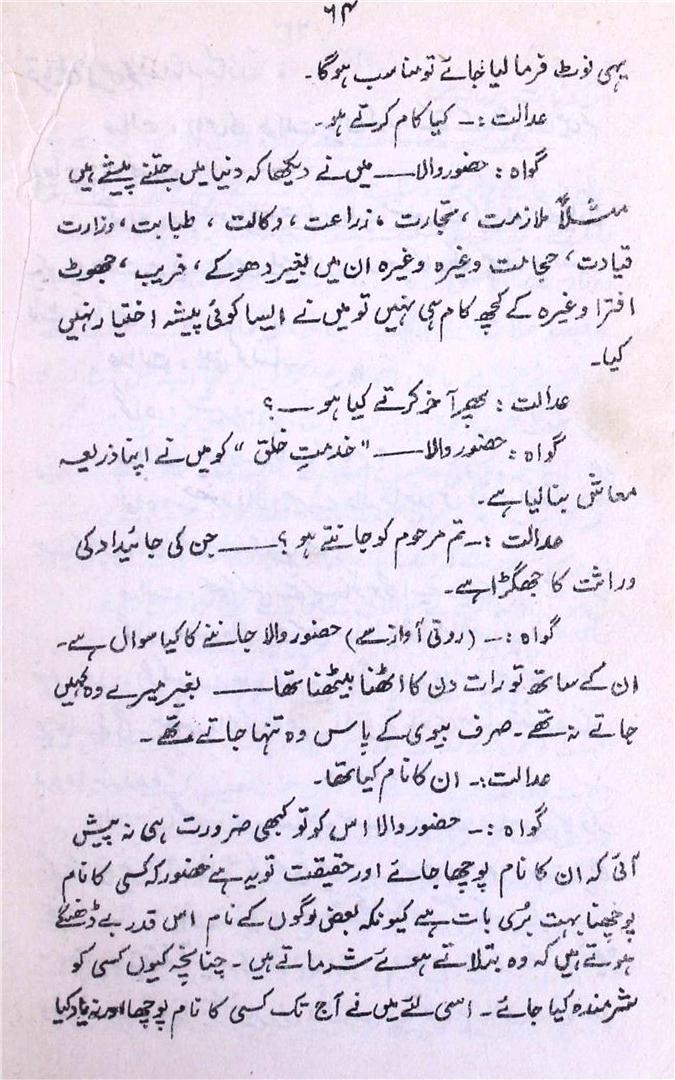 ۶۴
یہی نوٹ فرما لیا جائے تو مناسب ہوگا۔
عدالت :۔ کیا کام کرتے ہو۔
گواہ : حضور والا ــــ میں نے دیکھا کہ دنیا میں جتنے پیشے ہیں
مثلاً ملازمت ، تجارت ، زراعت ، وکالت ، طبابت ، وزارت
قیادت ، حجامت وغیرہ وغیرہ ان میں بغیر دھوکے ، فریب ، جھوٹ
افترا وغیرہ کے کچھ کام ہی نہیں تو میں نے ایسا کوئی پیشہ اختیار نہیں
کیا۔
عدالت : پھر آخر کرتے کیا ہو ــــ ؟
گواہ : حضور والا ــــ "خدمتِ خلق" کو میں نے اپنا ذریعہ
معاش بنا لیا ہے۔
عدالت :۔ تم مرحوم کو جانتے ہو ؟ ــــ جن کی جائیداد کی
وراثت کا جھگڑا ہے۔
گواہ :۔ (روتی آواز سے) حضور والا جاننے کا کیا سوال ہے۔
ان کے ساتھ تو رات دن کا اٹھنا بیٹھنا تھا ــــ بغیر میرے وہ کہیں
جاتے نہ تھے۔ صرف بیوی کے پاس وہ تنہا جاتے تھے۔
عدالت :۔ ان کا نام کیا تھا۔
گواہ :۔ حضور والا اس کو تو کبھی ضرورت ہی نہ پیش
آئی کہ ان کا نام پوچھا جائے اور حقیقت تو یہ ہے حضور کہ کسی کا نام
پوچھنا بہت بُری بات ہے کیونکہ بعض لوگوں کے نام اس قدر بے ڈھنگے
ہوتے ہیں کہ وہ بتلاتے ہوئے شرماتے ہیں۔ چنانچہ کیوں کسی کو
شرمندہ کیا جائے۔ اسی لئے میں نے آج تک کسی کا نام پوچھا اور نہ یاد کیا